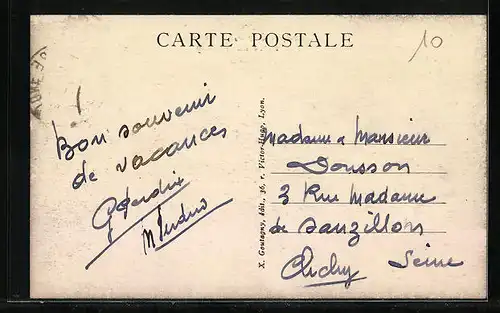 CARTE POSTALE
10
Bon souvenir
de vacances
X. Goutagny, édit., 36, r. Victor-Hugo, Lyon.
Madame & Monsieur
Dousson
3 Rue Madame
de Sanzillon
Clichy Seine